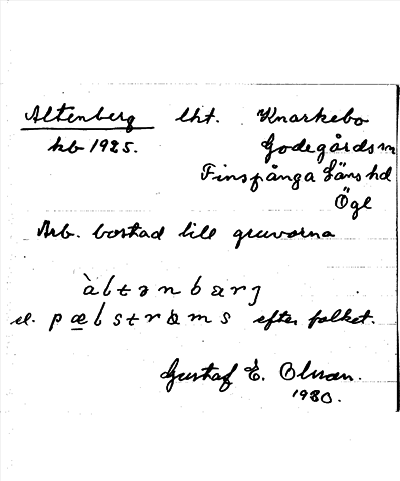 Altenberg lht. Knarkebo
kb 1925. Godegårds sn
Finspånga läns hd
Ögl
Arb. bostad till gruvorna
àltənbarj
el. pæbstrəms efter folket.
Gustaf E. Olsson.
1930.